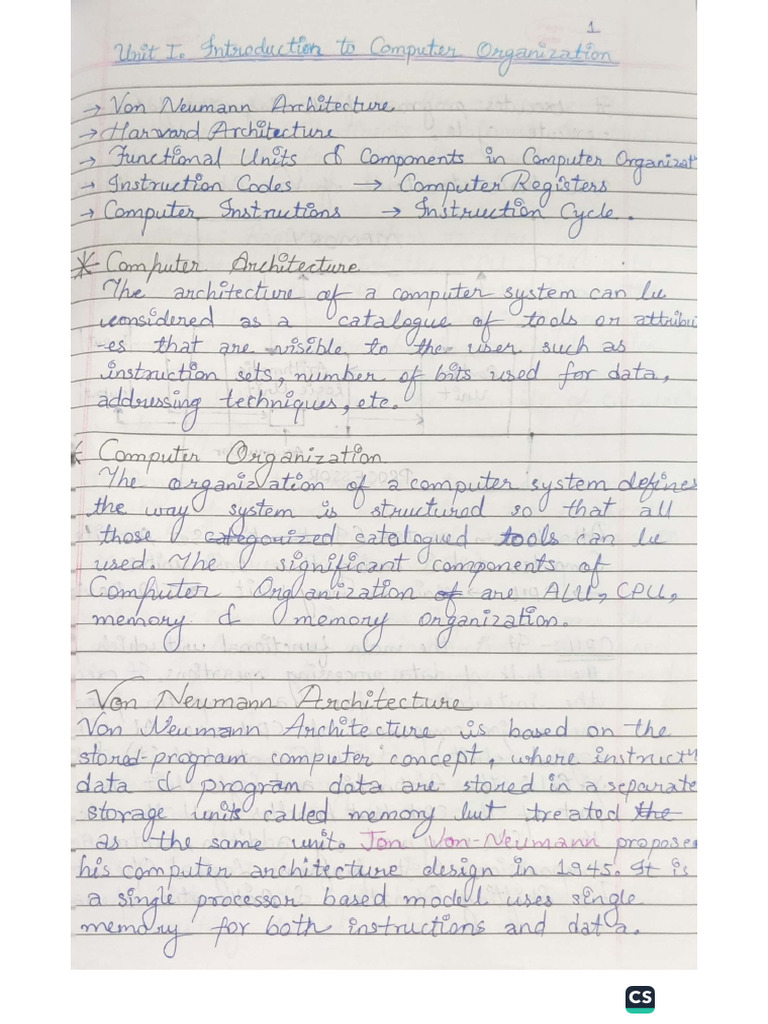 1
Unit I. Introduction to Computer Organization
→ Von Neumann Architecture
→ Harvard Architecture
→ Functional Units & Components in Computer Organizat
→ Instruction Codes → Computer Registers
→ Computer Instructions → Instruction Cycle.
* Computer Architecture
The architecture of a computer system can be
considered as a catalogue of tools or attribu
-es that are visible to the user such as
instruction sets, number of bits used for data,
addressing techniques, etc.
* Computer Organization
The organization of a computer system defines
the way system is structured so that all
those categorized catalogued tools can be
used. The significant components of
Computer Organization of are ALU, CPU,
memory & memory organization.
Von Neumann Architecture
Von Neumann Architecture is based on the
stored-program computer concept, where instructi
data & program data are stored in a separate
storage units called memory but treated the
as the same unit. Jon Von-Neumann propose
his computer architecture design in 1945. It is
a single processor based model uses single
memory for both instructions and data.
CS